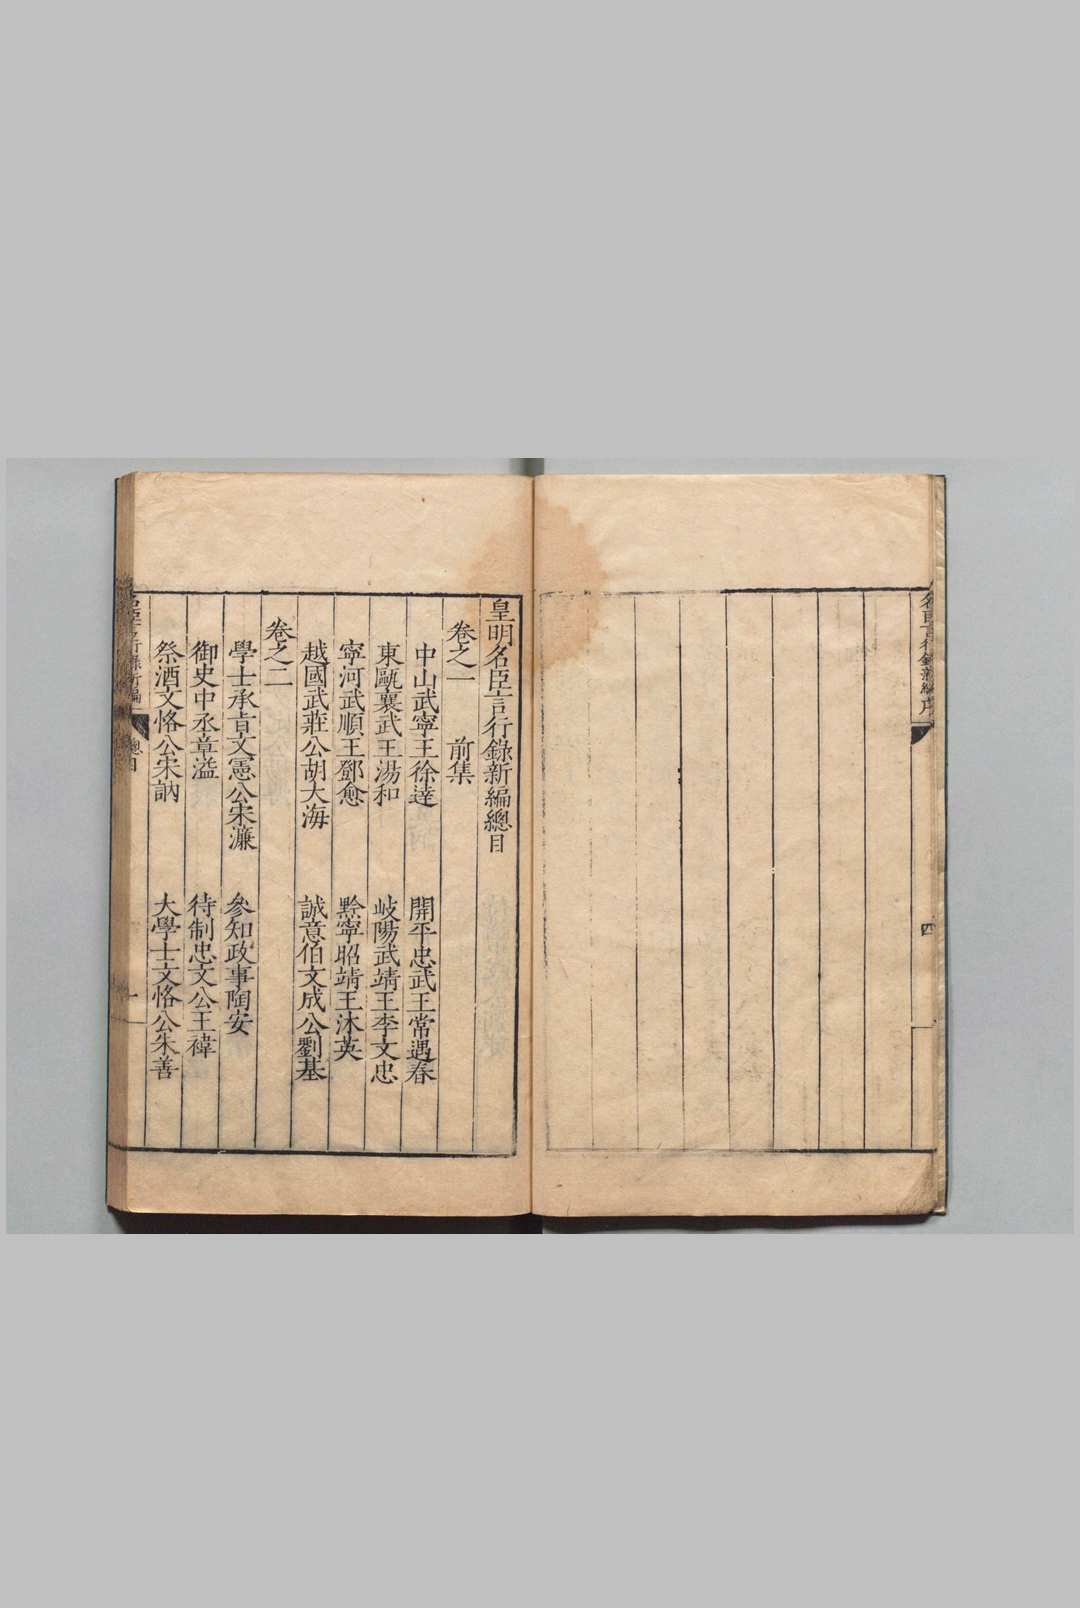 名臣言行錄新編序
四
皇明名臣言行錄新編總目
卷之一 前集
中山武寧王徐達 開平忠武王常遇春
東甌襄武王湯和 岐陽武靖王李文忠
寧河武順王鄧愈 黔寧昭靖王沐英
越國武莊公胡大海 誠意伯文成公劉基
卷之二
學士承旨文憲公宋濂 參知政事陶安
御史中丞章溢 待制忠文公王褘
祭酒文恪公宋訥 大學士文恪公朱善
名臣言行錄新編 總目 一